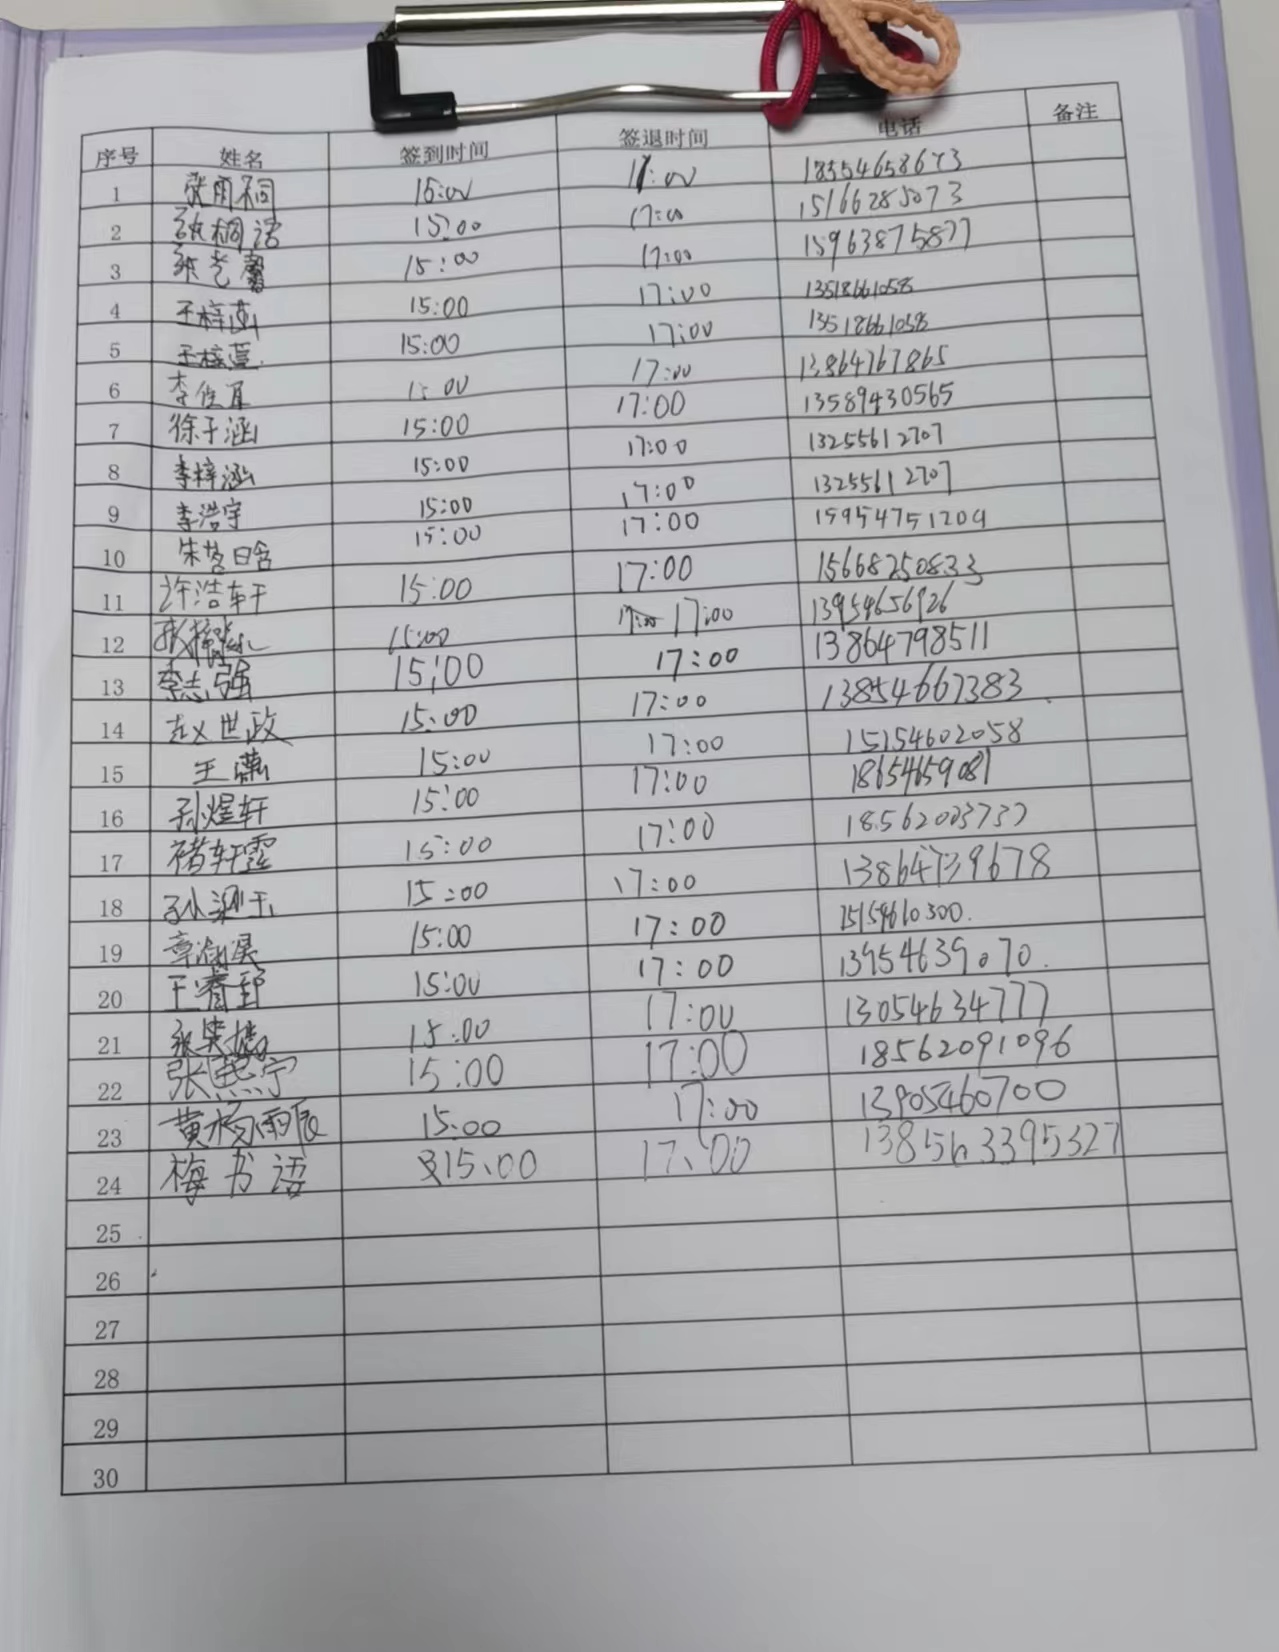 序号 姓名 签到时间 签退时间 电话 备注
1 张雨桐 15:00 17:00 18354658673
2 张桐语 15:00 17:00 15166285073
3 张艺馨 15:00 17:00 15963875877
4 王梓 15:00 17:00 13518661058
5 王梓萱 15:00 17:00 13518661058
6 李俊 15:00 17:00 13864767865
7 徐子涵 15:00 17:00 13589430565
8 李梓涵 15:00 17:00 13255612707
9 李浩宇 15:00 17:00 13255612707
10 朱茗晗 15:00 17:00 15954751209
11 许浩轩 15:00 17:00 15668250833
12 15:00 17:00 13954656926
13 李志强 15:00 17:00 13864798511
14 赵世政 15:00 17:00 13854667383
15 王潇 15:00 17:00 15154602058
16 孙煜轩 15:00 17:00 18654659081
17 褚轩霆 15:00 17:00 18562003737
18 孙 玉 15:00 17:00 13864739678
19 章 15:00 17:00 15154610300.
20 王睿 15:00 17:00 13954639070.
21 张 15:00 17:00 13054634777
22 张熙宁 15:00 17:00 18562091096
23 黄杨雨辰 15:00 17:00 13905460700
24 梅书语 15:00 17:00 138563395327
25
26
27
28
29
30